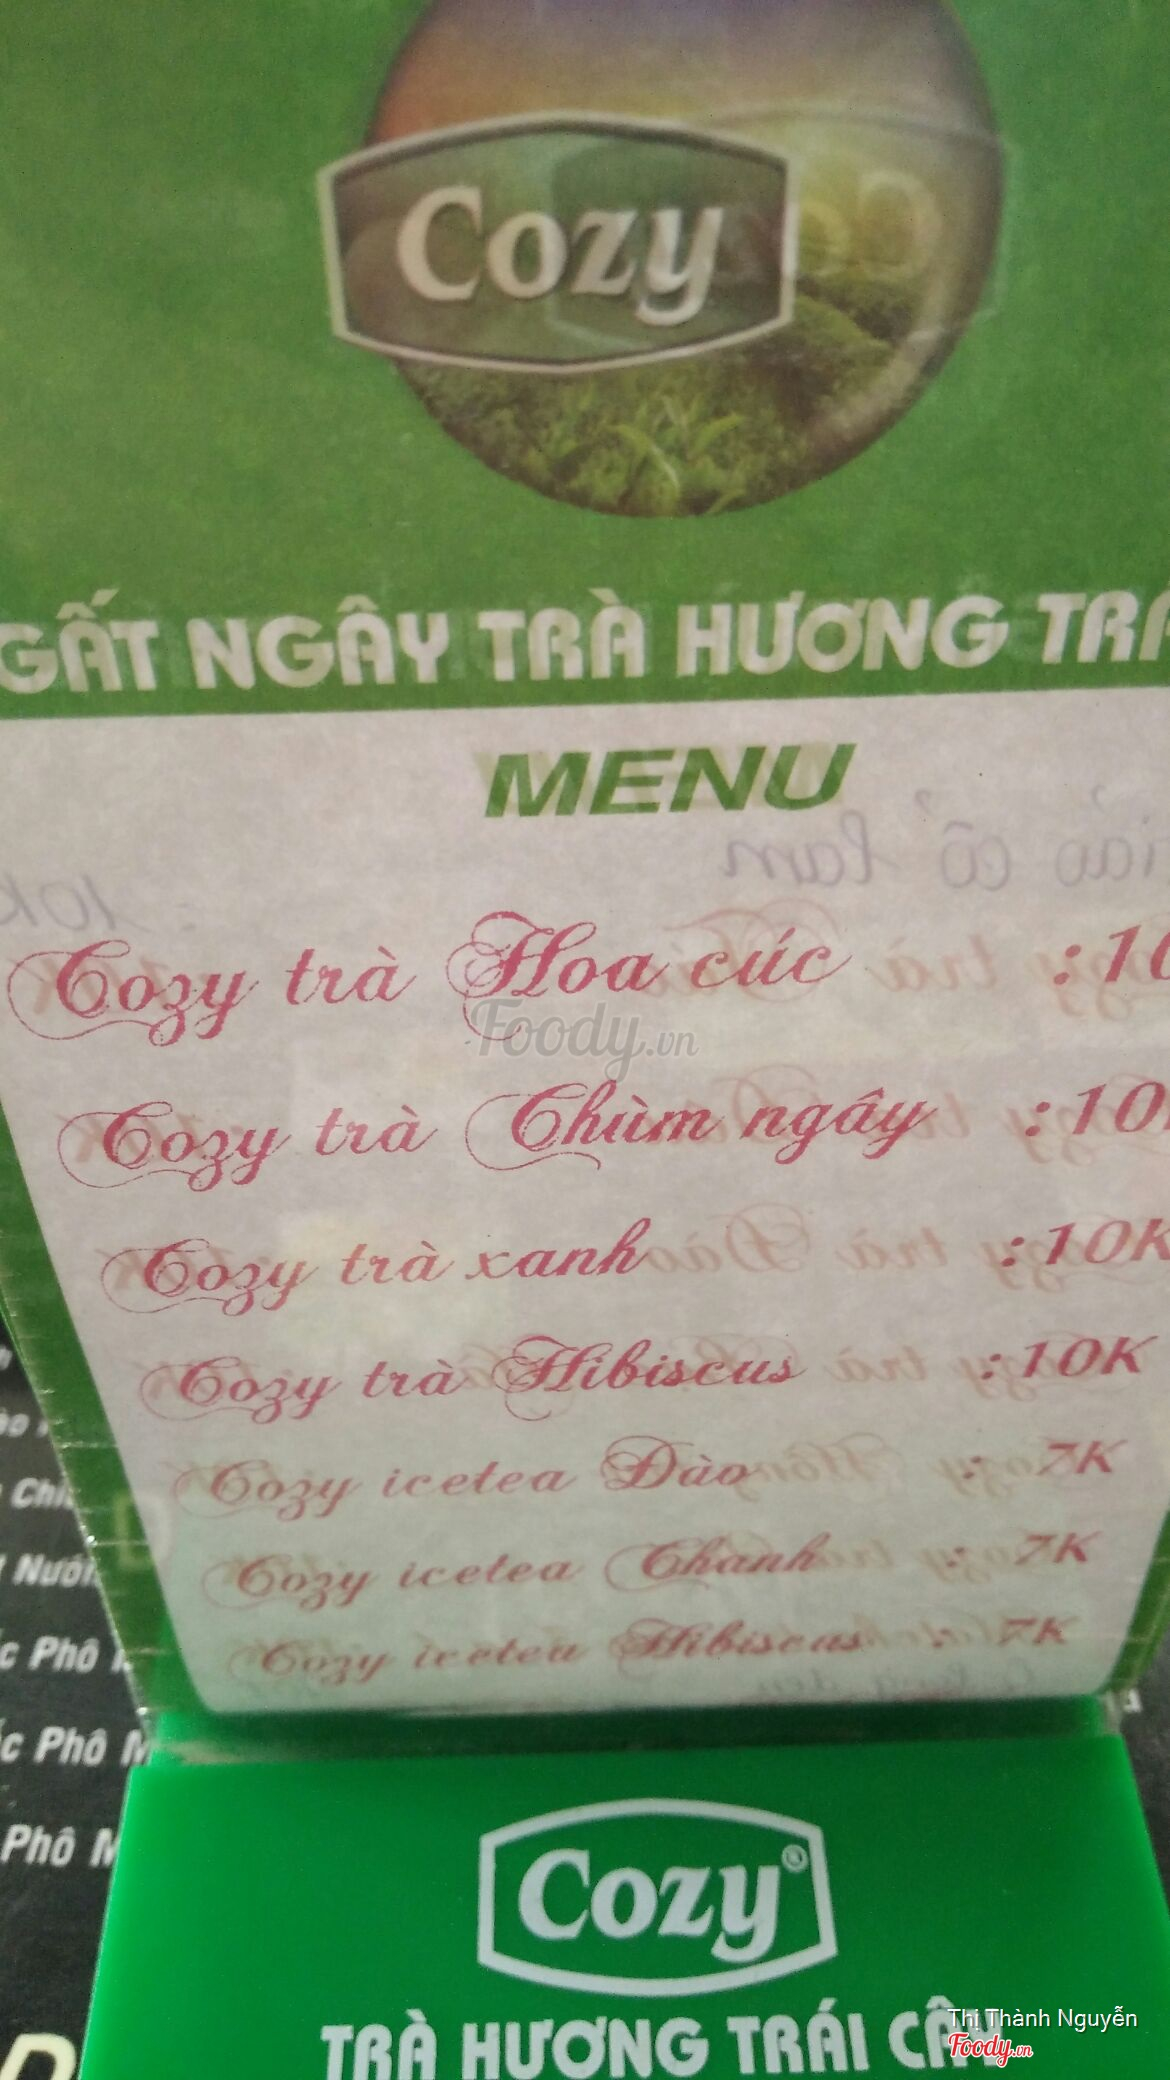 Cozy
GẤT NGÂY TRÀ HƯƠNG
MENU
Cozy trà Hoa cúc : 10
Cozy trà Chùm ngây : 10K
Cozy trà xanh : 10K
Cozy trà Hibiscus : 10K
Cozy icetea Đào : 7K
Cozy icetea Chanh : 7K
Cozy icetea Hibiscus : 7K
Foody.vn
c Phô
c Phô M
Phô M
Cozy®
TRÀ HƯƠNG TRÁI CÂY
Thị Thành Nguyễn
Foody.vn